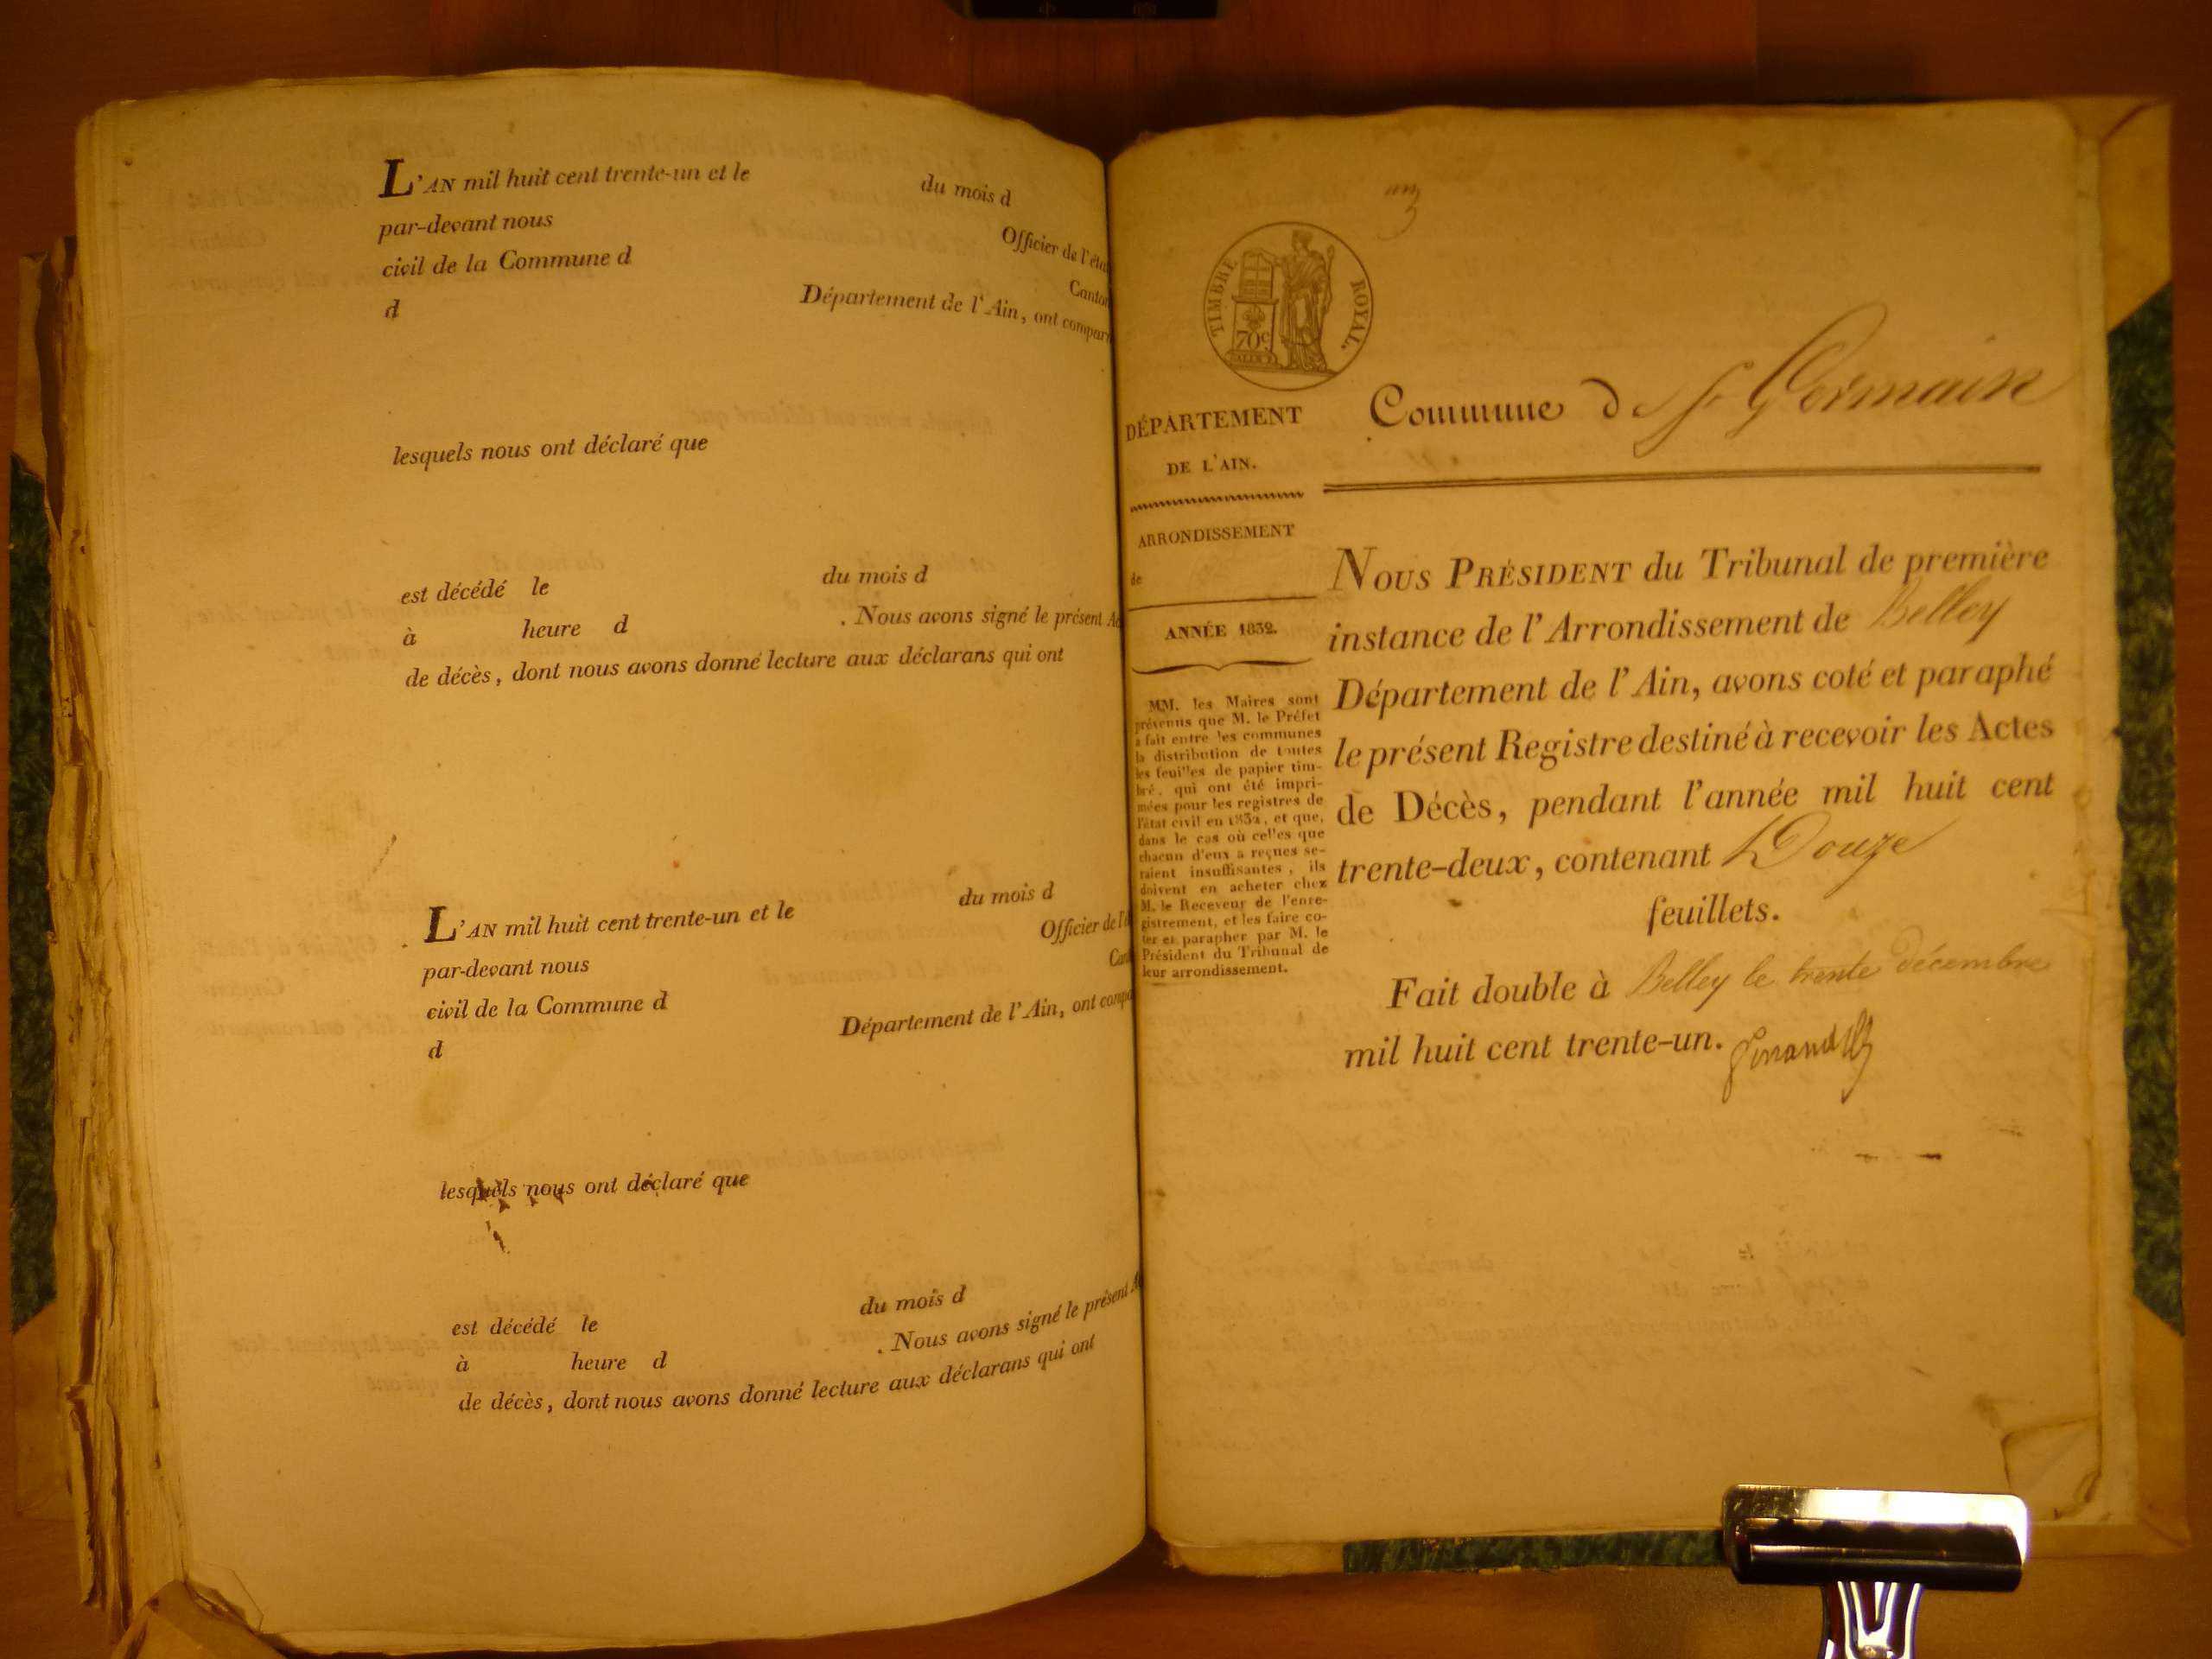 L'AN mil huit cent trente-un et le du mois d
par-devant nous Officier de l'éta
civil de la Commune d Canton
d Département de l'Ain, ont compar
lesquels nous ont déclaré que
est décédé le du mois d
à heure d . Nous avons signé le présent Ac
de décès, dont nous avons donné lecture aux déclarans qui ont
L'AN mil huit cent trente-un et le du mois d
par-devant nous Officier de l'é
civil de la Commune d Cant
d Département de l'Ain, ont compa
lesquels nous ont déclaré que
est décédé le du mois d
à heure d . Nous avons signé le présent A
de décès, dont nous avons donné lecture aux déclarans qui ont
TIMBRE ROYAL.
70c
DÉPARTEMENT
DE L'AIN.
ARRONDISSEMENT
de
ANNÉE 1832.
MM. les Maires sont
prévenus que M. le Préfet
a fait entre les communes
la distribution de toutes
les feuilles de papier tim-
bré, qui ont été impri-
mées pour les registres de
l'état civil en 1832, et que,
dans le cas où celles que
chacun d'eux a reçues se-
raient insuffisantes, ils
doivent en acheter chez
M. le Receveur de l'enre-
gistrement, et les faire co-
ter et parapher par M. le
Président du Tribunal de
leur arrondissement.
Commune de St Germain
NOUS PRÉSIDENT du Tribunal de première
instance de l'Arrondissement de Belley
Département de l'Ain, avons coté et paraphé
le présent Registre destiné à recevoir les Actes
de Décès, pendant l'année mil huit cent
trente-deux, contenant Douze
feuillets.
Fait double à Belley le trente décembre
mil huit cent trente-un.